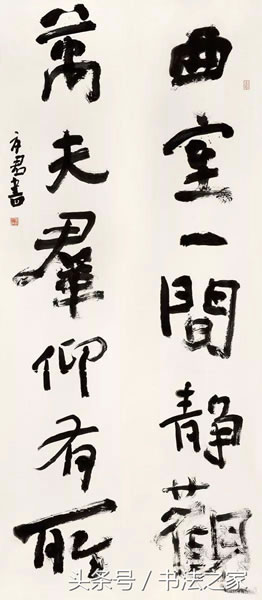 曲室一間静觀
萬夫羣仰有
君書
头条号 / 书法之家